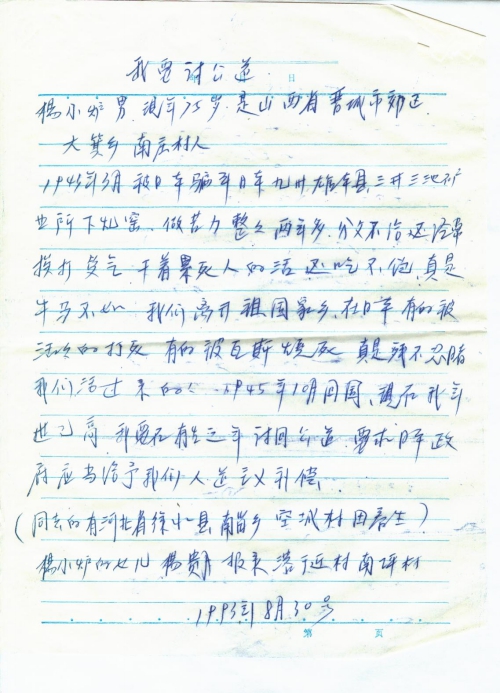 我要讨公道
日
杨小炉 男 现年75岁 是山西省晋城市郊区
大箕乡 南庄村人
1943年3月 被日本骗到日本九州 雄本县 三井三池矿
业所下煤窑、做苦力 整整 两年多 分文不给 还经常
挨打受气 干着累死人的活 还吃不饱 真是
牛马不如 我们离开祖国家乡、在日本 有的被
活活的打死 有的被瓦斯烧死 真是残不忍睹
我们活过来的 1945年10月回国、现在我年
世已高 我要在有生之年 讨回公道 要求日本政
府应当给予我们人道主义补偿
(同去的有河北省徐水县 南留乡 空城村 田春生)
杨小炉的女儿 杨 村 南坪村
1993年8月30号
第 页